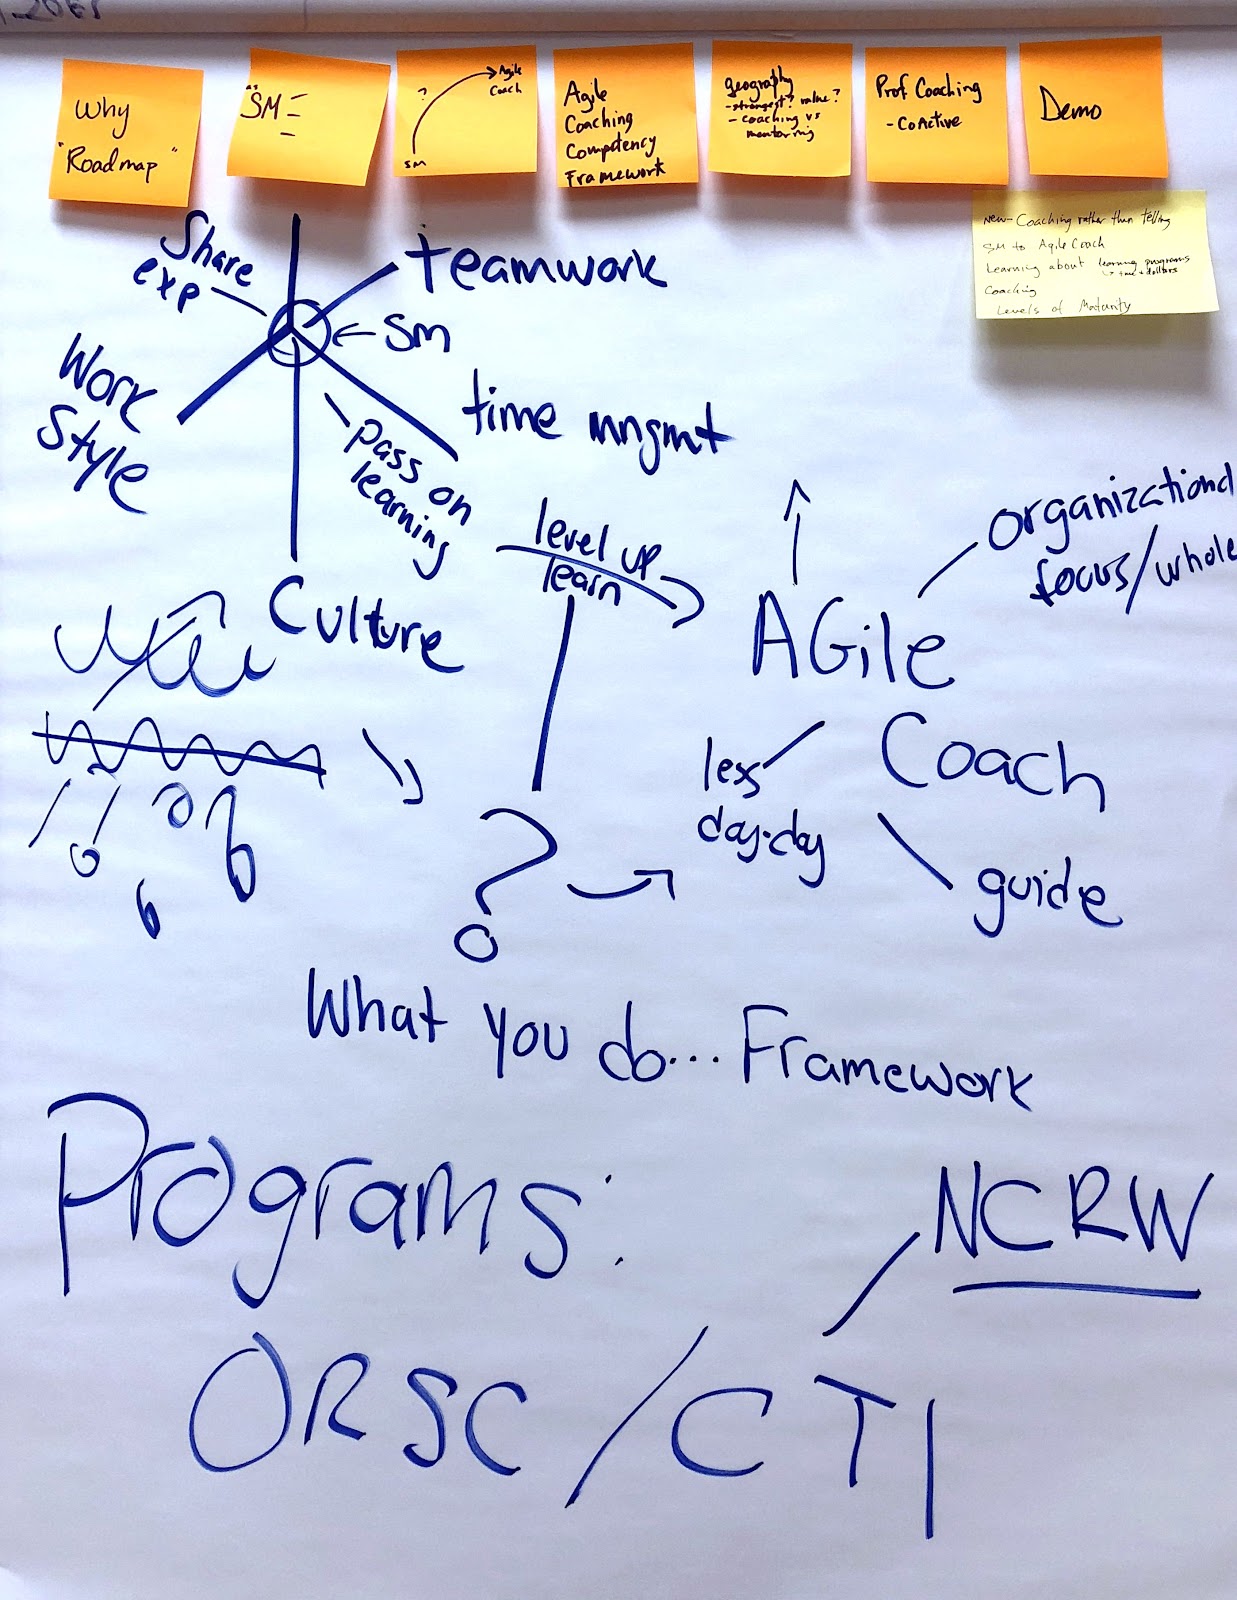 Why
"Roadmap"
SM
?
Agile
Coach
SM
Agile
Coaching
Competency
Framework
geography
- strongest? value?
- coaching vs
mentoring
Prof Coaching
- CoActive
Demo
New - Coaching rather than telling
SM to Agile Coach
Learning about learning programs
time + dollars
Coaching
Levels of Maturity
Share
exp
teamwork
SM
Work
Style
time mngmt
pass on
learning
Culture
level up
learn
organizational
focus/whole
AGile
Coach
less
day-day
guide
?
What you do... Framework
Programs:
NCRW
ORSC/CTI